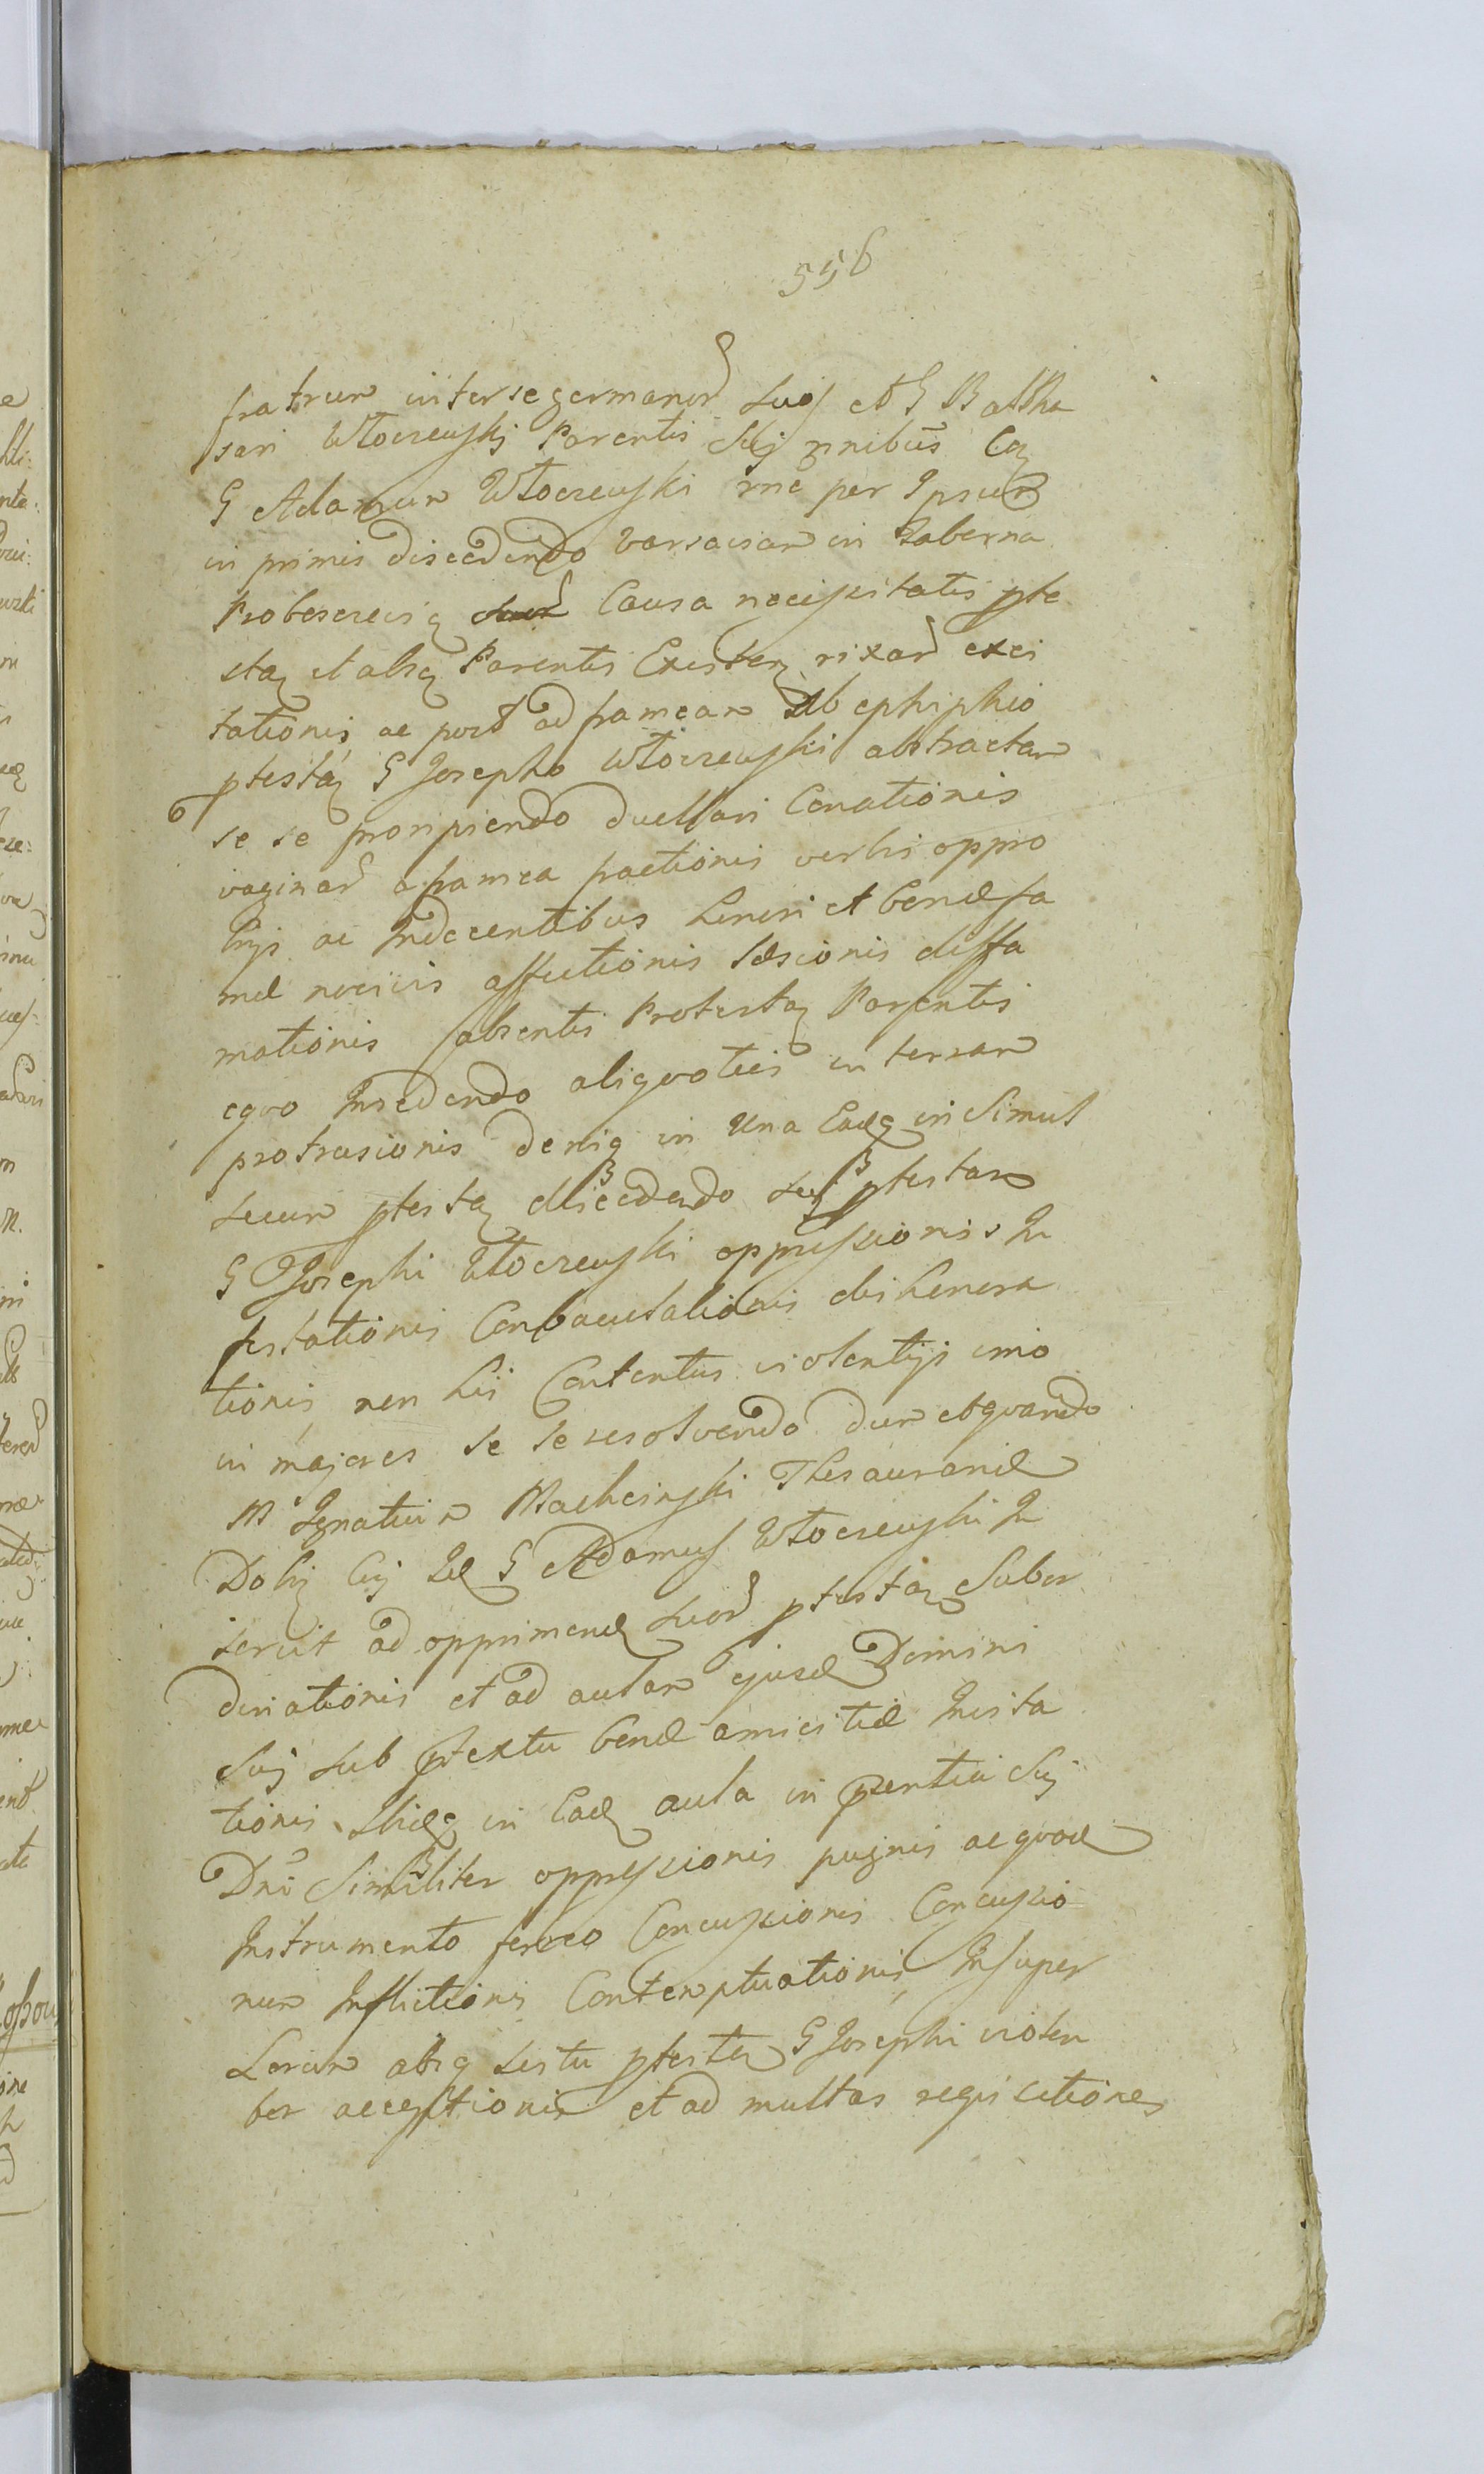 556
fratrum inter se germanor suoꝝ et G Baltha
sari Włoczewskj Parentis Sui nnibus Coꝫ
G Adamum Włoczewski rne per Ipsum
in primis discedendo Varsaviam in Taberna
causa necessitatis pte
staꝫ et absꝫ Parentis Existenꝫ rixar exci
tationis ac post ad frameam Ab ephiphio
ptestaꝫ G Josepho Włoczewski abstractam
se se proripiendo duellari Conationis
vaginar a framea fractionis verbis oppro
brijs ac Indecentibus honori et bonæ fa
mæ nocivis affectionis læsionis diffa
mationis absentis Protestaꝫ Parentis
equo Insedendo aliquoties in terram
protrusionis deniqꝫ in Una Eadꝫ in Simul
secum ptestaꝫ discedendo sui ptestan
G Josephi Włoczewski oppressionis In
festationis Conbaculationis dishonora
tionis non his Contentus violentijs imo
in majores se se resolvendo dum aliquando
M Ignatium Thesaurariæ
Dobꝫ G Adamus Włoczewski In
seruit ad opprimenꝫ suor ptestaꝫ Subor
dinationis et ad aulam ejusd Domini
Sui sub ptextu bonæ amicitiæ Invita
tionis Ibidꝫ in Eadꝫ aula in pzentia Sui
Dni Similiter oppressionis pugnis ac quod
Instrumento ferreo Concussionis Concussio
num Inflictionis Contemptuationis Insuper
Lorum absqꝫ scitu ptestaꝫ G Josephi violen
ter acceptionis et ad multas requisitiones